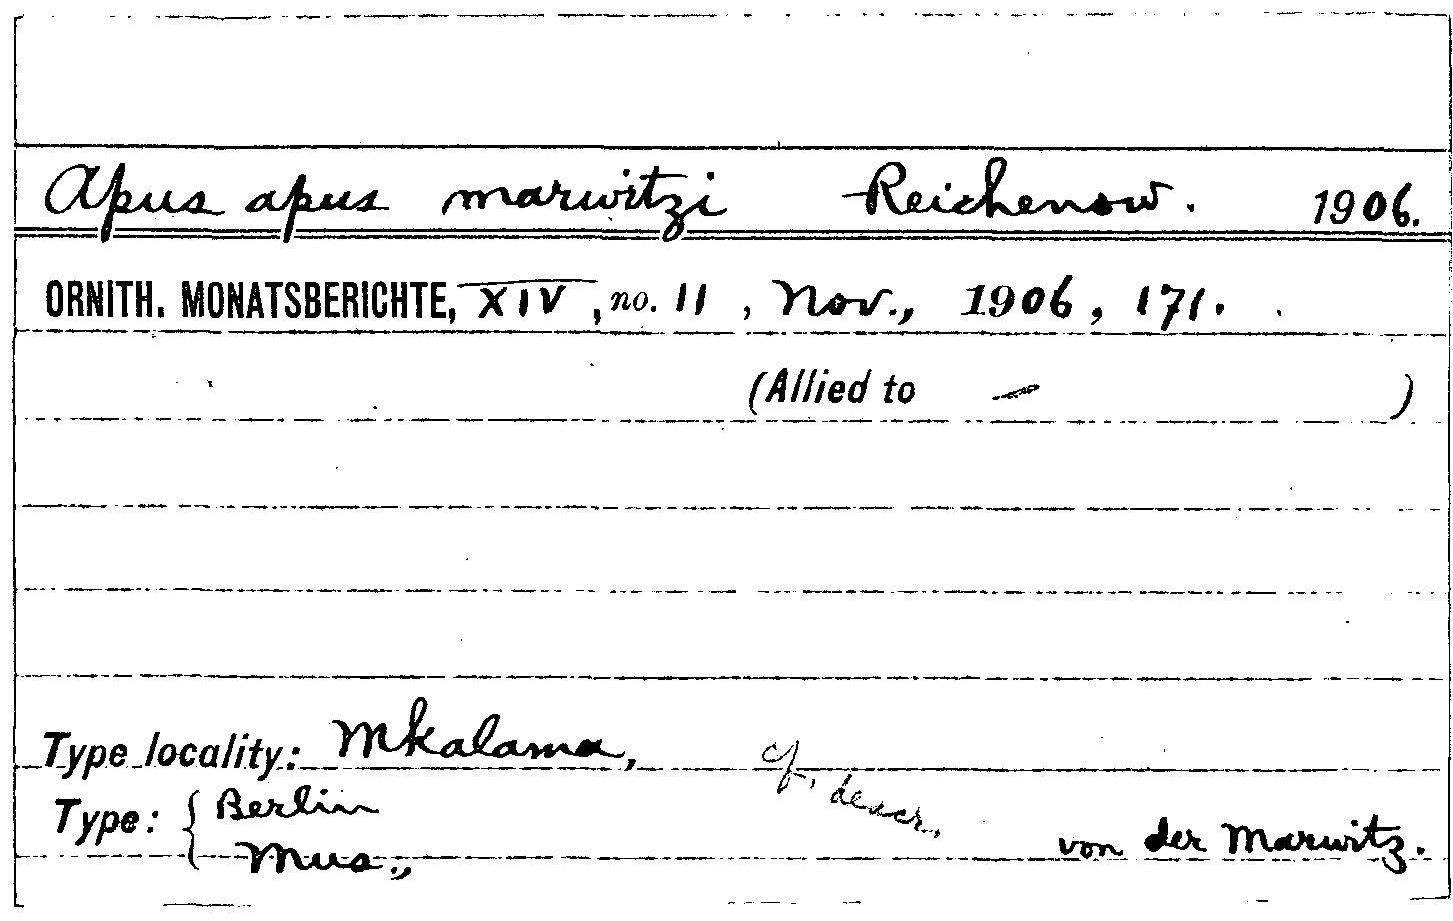 Apus apus marwitzi Reichenow. 1906.
ORNITH. MONATSBERICHTE, XIV, no. 11, Nov., 1906, 171.
(Allied to — )
Type locality: Mkalama, cf. descr.
Type: { Berlin
Mus., von der Marwitz.